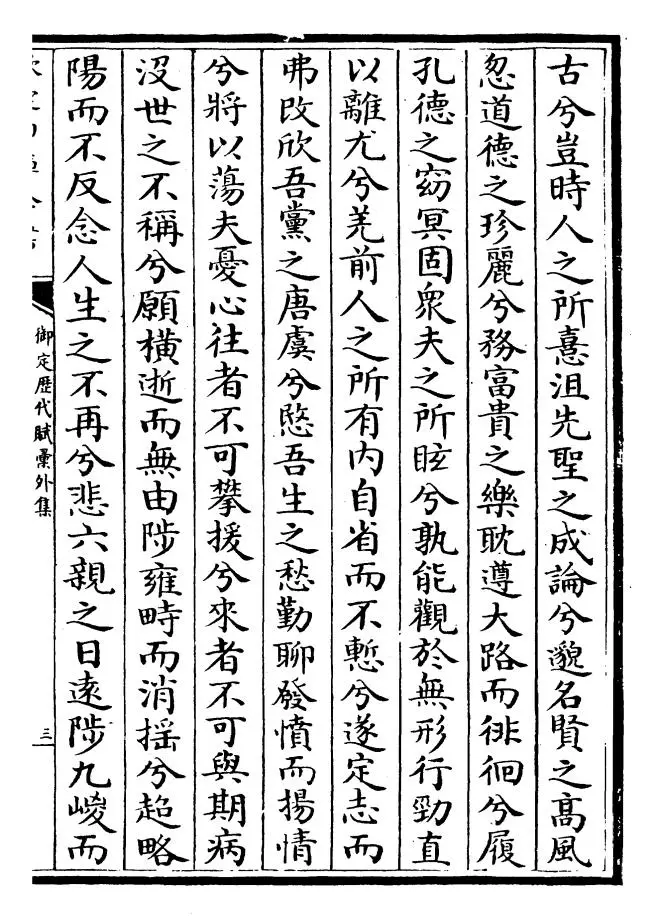 古兮豈時人之所憙沮先聖之成論兮邈名賢之高風
忽道德之珍麗兮務富貴之樂耽遵大路而徘徊兮履
孔德之窈冥固衆夫之所眩兮孰能觀於無形行勁直
以離尤兮羌前人之所有内自省而不慙兮遂定志而
弗改欣吾黨之唐虞兮愍吾生之愁勤聊發憤而揚情
兮將以蕩夫憂心往者不可攀援兮來者不可與期病
沒世之不稱兮願橫逝而無由陟雍畤而消揺兮超略
陽而不反念人生之不再兮悲六親之日逺陟九嵕而
御定歴代賦彚外集
三